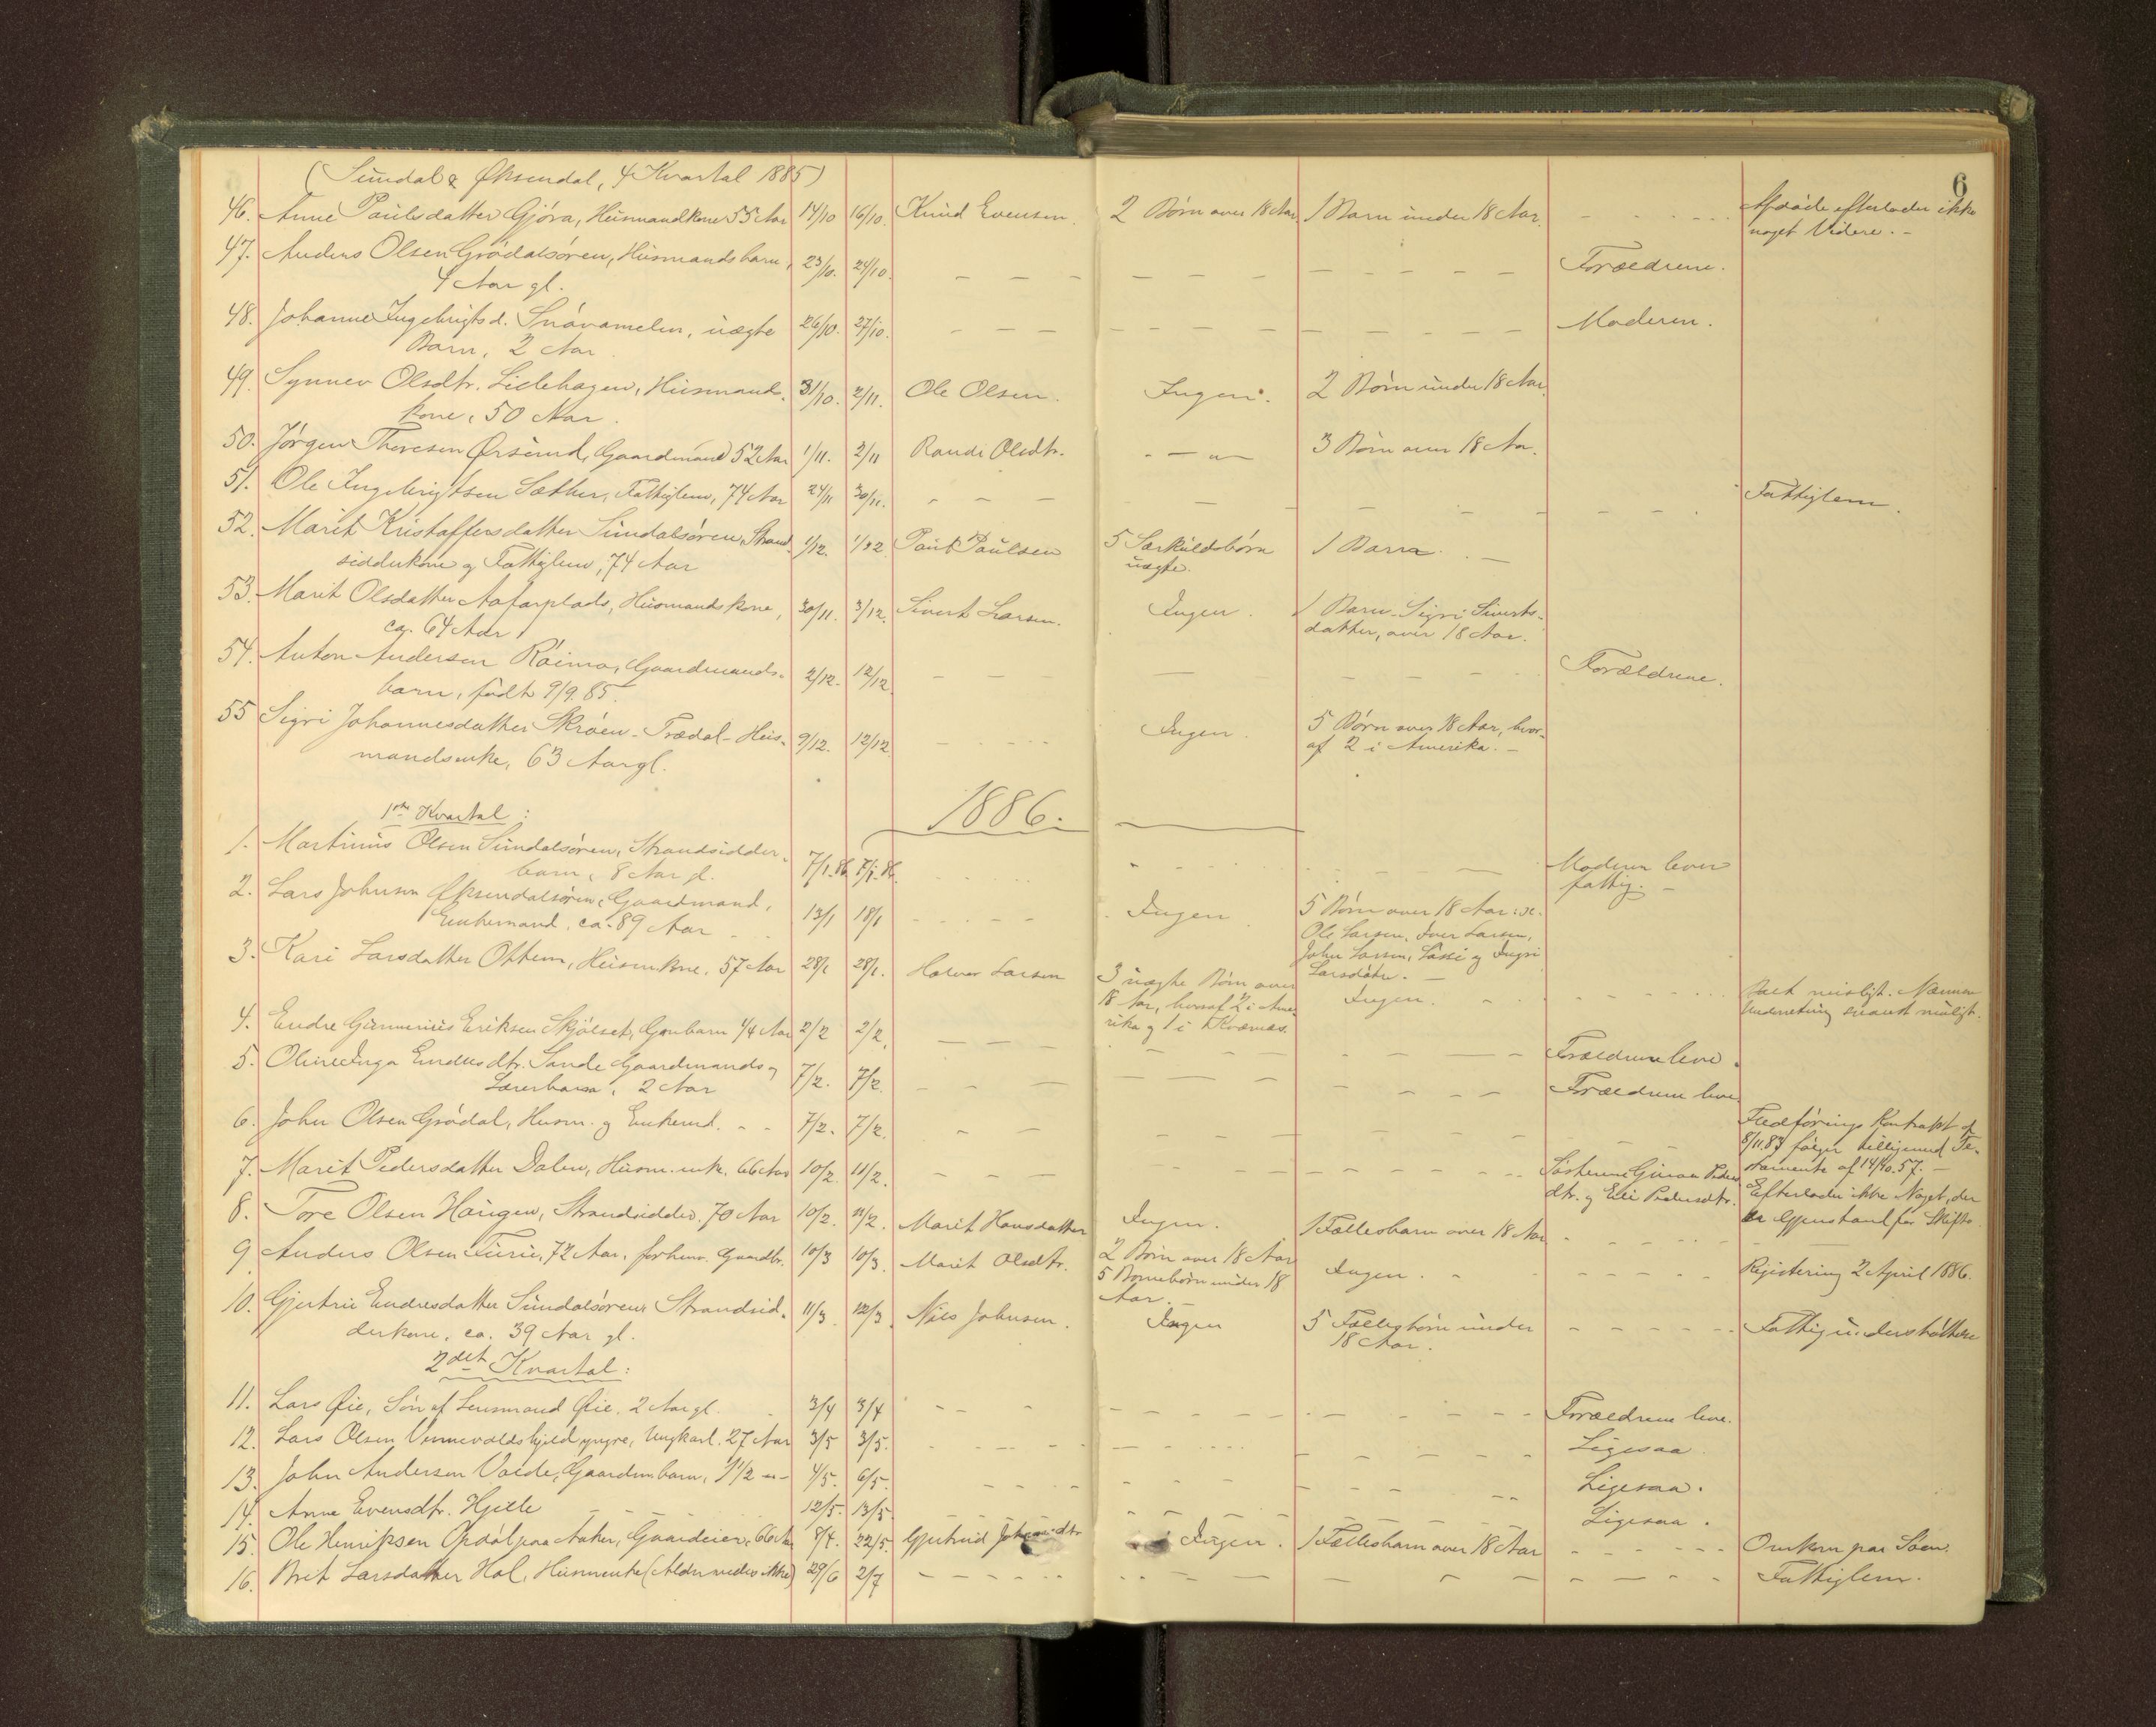 6
(Sundal & Øksendal, 4 Kvartal 1885)
46. Anne Paulsdatter Gjöra, Husmandkone 55 Aar 14/10 16/10. Knud Evensen. 2 Børn over 18 Aar 1 Barn under 18 Aar. - - - Afdöde efterlader ikke
noget Videre. -
47. Anders Olsen Grödalsören, Husmandsbarn, 23/10. 24/10. - - - Forældrene.
4 Aar gl.
48. Johanne Ingebrigtsd. Snövamelen, uægte 26/10. 27/10. - - - Moderen.
Barn, 2 Aar.
49. Synnev Olsdtr. Lislehagen, Husmands- 31/10. 2/11. Ole Olsen. Ingen. 2 Børn under 18 Aar.
kone, 50 Aar.
50. Jörgen Thoresen Ørsund, Gaardmand 52 Aar 1/11. 2/11 Randi Olsdtr. - - " - 3 Børn over 18 Aar.
51. Ole Ingebrigtsen Sæther, Fattiglem, 74 Aar 24/11 30/11. - - - Fattiglem.
52. Marit Kristoffersdatter Sundalsören, Strand- 1/12. 1/12 Paul Paulsen 5 Særkuldsbörn 1 Barn. -
sidderkone og Fattiglem, 74 Aar uægte.
53. Marit Olsdatter Aafarplads, Husmandskone, 30/11. 3/12. Sivert Larsen. Ingen. 1 Barn - Sigri Siverts-
ca. 64 Aar datter, over 18 Aar.
54. Anton Andersen Röimo, Gaardmands- 2/12. 12/12 - - - Forældrene.
barn, födt 9/9. 85.
55 Sigri Johannesdatter Skröen - Trædal - Hus- 9/12. 12/12 - - - Ingen. 5 Børn over 18 Aar, hvor-
mandsenke, 63 Aar gl. af 2 i Amerika. -
1886.
1ste Kvartal:
1. Martinus Olsen Sundalsören, Strandsidder- 7/1.86 7/1.86. - - - Moderen lever
barn, 8 Aar gl. fattig. -
2. Lars Johnsen Øksendalsören, Gaardmand, 13/1 18/1 - - - Ingen 5 Børn over 18 Aar:
Enkemand, ca. 89 Aar Ole Larsen, Iver Larsen,
John Larsen, Lassi og Ingri
Larsdøtre. -
3. Kari Larsdatter Ottem, Husmkone, 57 Aar 28/1 28/1. Halvor Larsen 3 uægte Børn over Ingen. - - - Boet misligt. Nærmere
18 Aar, hvoraf 2 i Ame- Underretning snarest muligt.
rika og 1 i
4. Endre Gunnerius Eriksen Skjölset, Gmbarn 1/4 Aar 2/2 2/2. - - - Forældrene leve.
5. Oline Inga Endresdtr. Sande Gaardmands og 7/2. 7/2. - - - Forældrene leve.
Lærerbarn, 2 Aar
6. John Olsen Grödal, Husm. og Enkemd. - - 7/2. 7/2. - - - Fledförings Kontrakt af
8/11.83 fölger tilligemed Te-
stamente af 14/10.57. -
7. Marit Pedersdatter Dalen, Husm.enke, 66 Aar 10/2. 11/2. - - - Söstrene Guroe Peders
dtr. og Eli Pedersdtr. Efterlader ikke Noget, der
er Gjenstand for Skifte.
8. Tore Olsen Haugen, Strandsidder, 70 Aar 10/2. 11/2. Marit Hansdatter Ingen. 1 Fællesbarn over 18 Aar - - -
9 Anders Olsen Furu, 72 Aar, forhenv. Gaardbr. 10/3 10/3. Marit Olsdtr. 2 Børn over 18 Aar Ingen. - - - Registering 2 April 1886.
5 Börnebörn under 18
Aar.
10. Gjertrue Endresdatter Sundalsören, Strandsid- 11/3. 12/3. Nils Johnsen. Ingen 5 Fællesbörn under - - - Fattigunderstöttede
derkone, ca. 39 Aar gl. 18 Aar.
2det Kvartal:
11. Lars Øie, Sön af Lensmand Øie, 2 Aar gl. 3/4 3/4 - - - Forældrene leve.
12. Lars Olsen Vennevoldshjeld yngre, Ungkarl. 27 Aar 3/5 3/5. - - - Ligesaa.
13. John Andersen Volde, Gaardmbarn, 1 1/2 -"- 4/5. 6/5. - - - Ligesaa.
14. Anne Evensdtr. Hjelle - - - 12/5. 13/5. - - - Ligesaa.
15. Ole Henriksen Opdöl paa Aaker, Gaardeier, 66 Aar 8/4. 22/5. Gjertrud Johansdtr Ingen. 1 Fællesbarn over 18 Aar - - -
16. Brit Larsdatter Hol, Husmenke (Alder vides ikke) 29/6 2/7 - - - Fattiglem.